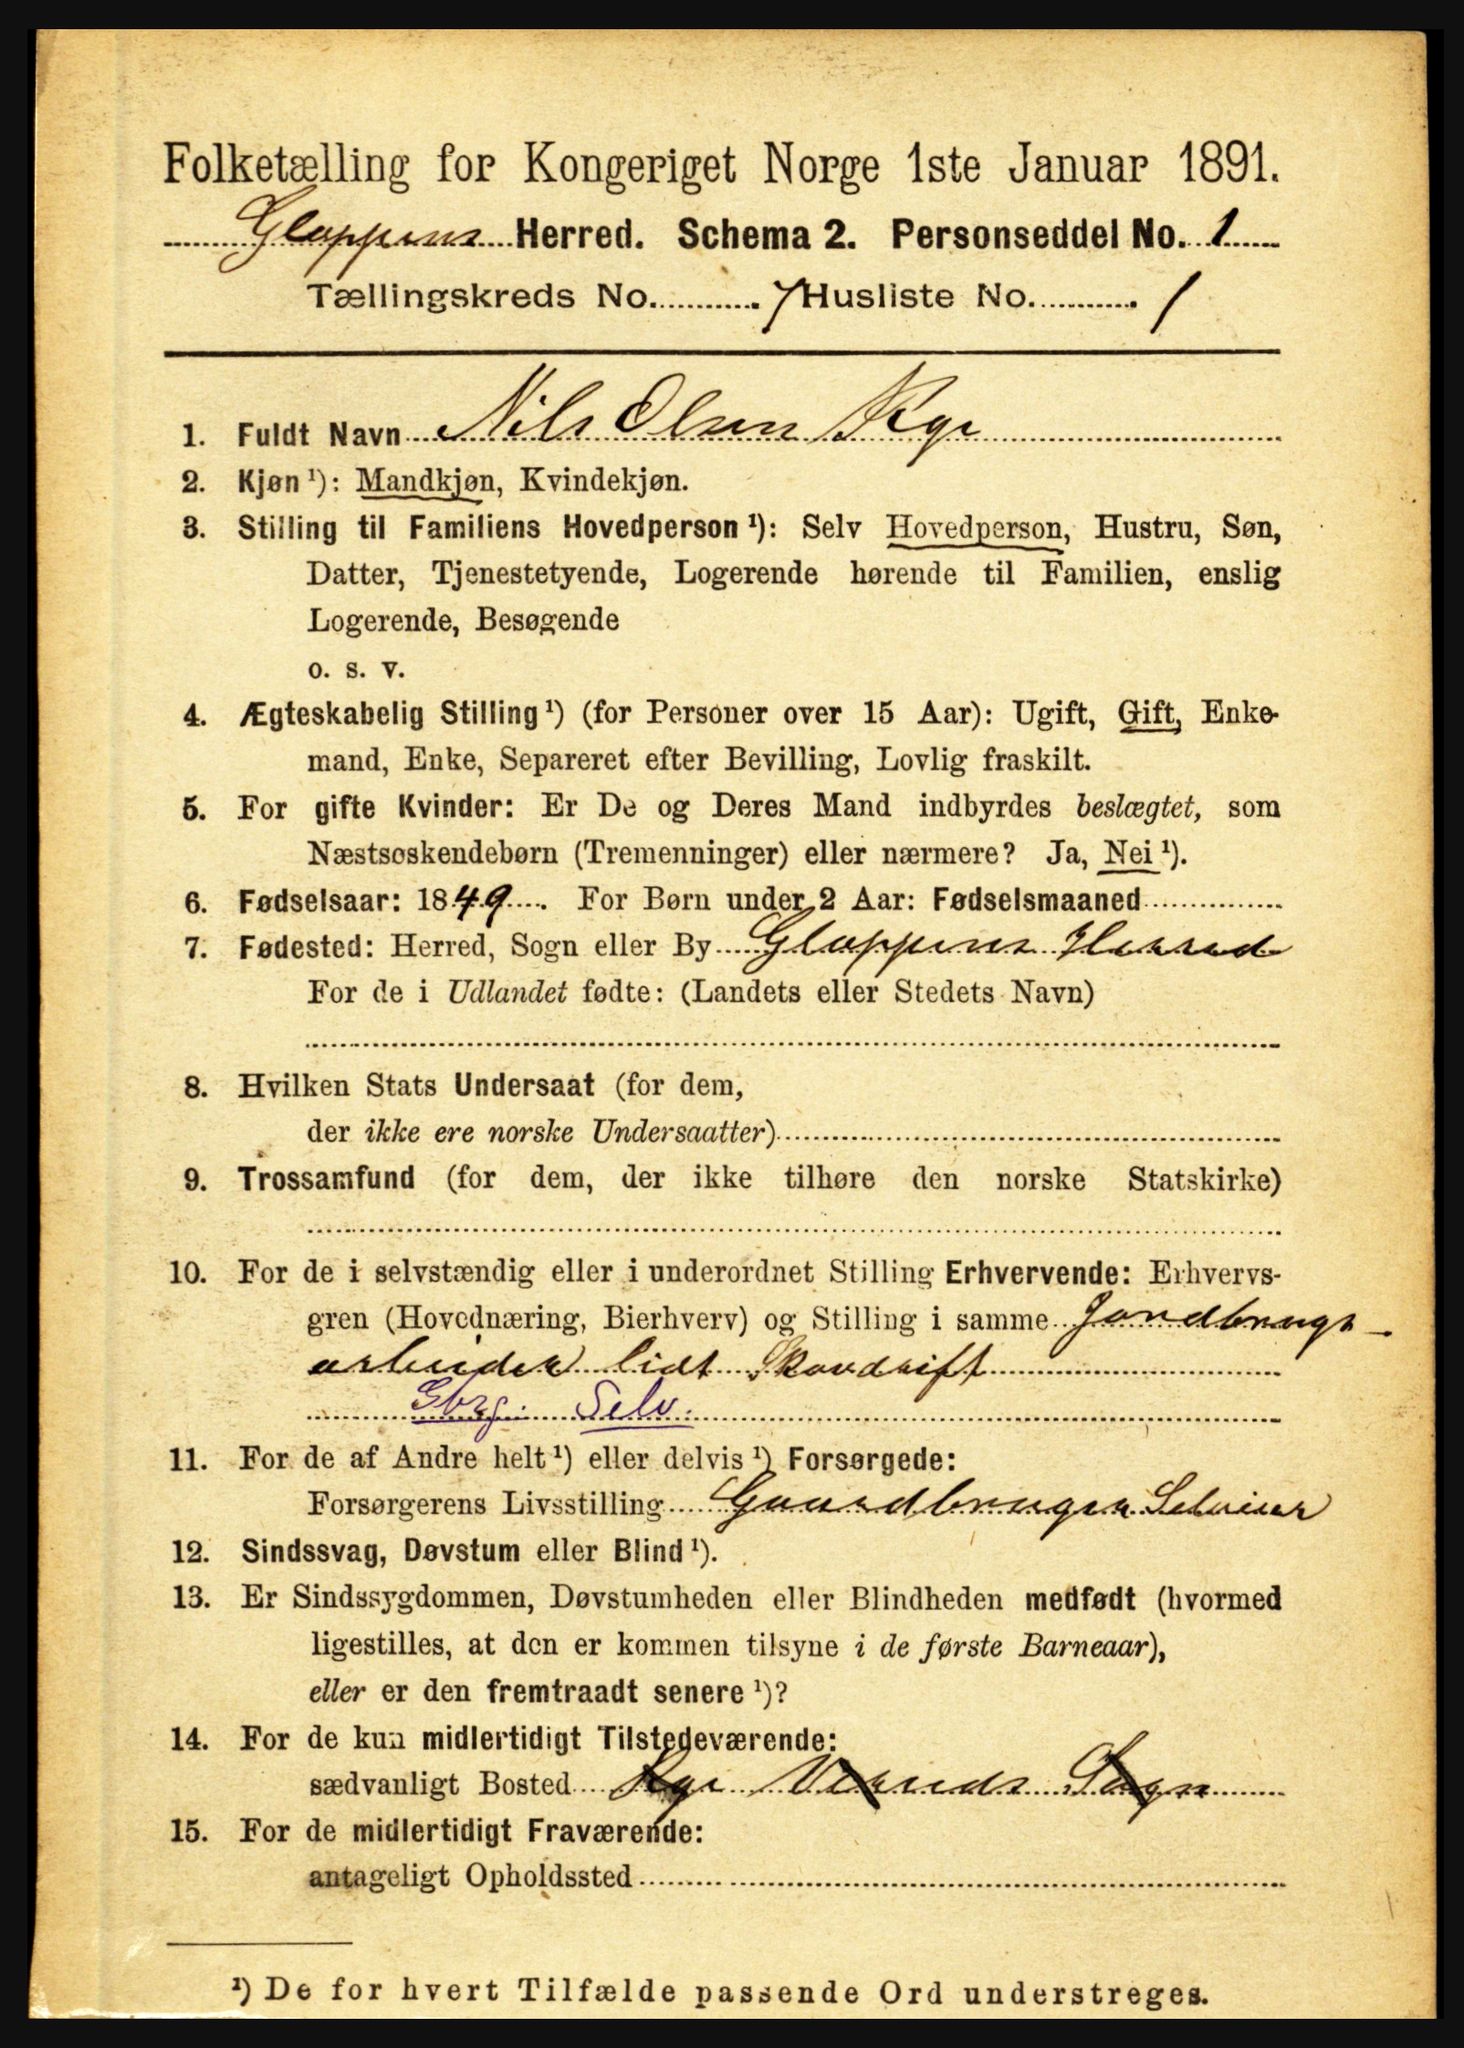 Folketælling for Kongeriget Norge 1ste Januar 1891.
Gloppens Herred. Schema 2. Personseddel No. 1
Tællingskreds No. 7 Husliste No. 1
1. Fuldt Navn Nils Olsen Rye
2. Kjøn ¹): Mandkjøn, Kvindekjøn.
3. Stilling til Familiens Hovedperson ¹): Selv Hovedperson, Hustru, Søn,
Datter, Tjenestetyende, Logerende hørende til Familien, enslig
Logerende, Besøgende
o. s. v.
4. Ægteskabelig Stilling ¹) (for Personer over 15 Aar): Ugift, Gift, Enke-
mand, Enke, Separeret efter Bevilling, Lovlig fraskilt.
5. For gifte Kvinder: Er De og Deres Mand indbyrdes beslægtet, som
Næstsøskendebørn (Tremenninger) eller nærmere? Ja, Nei ¹).
6. Fødselsaar: 1849. For Børn under 2 Aar: Fødselsmaaned
7. Fødested: Herred, Sogn eller By Gloppens Herred
For de i Udlandet fødte: (Landets eller Stedets Navn)
8. Hvilken Stats Undersaat (for dem,
der ikke ere norske Undersaatter)
9. Trossamfund (for dem, der ikke tilhøre den norske Statskirke)
10. For de i selvstændig eller i underordnet Stilling Erhvervende: Erhvervs-
gren (Hovednæring, Bierhverv) og Stilling i samme Jordbrugs-
arbeider lidt Skovdrift
Gbrg. Selv.
11. For de af Andre helt ¹) eller delvis ¹) Forsørgede:
Forsørgerens Livsstilling Gaardbruger Selveier
12. Sindssvag, Døvstum eller Blind ¹).
13. Er Sindssygdommen, Døvstumheden eller Blindheden medfødt (hvormed
ligestilles, at den er kommen tilsyne i de første Barneaar),
eller er den fremtraadt senere ¹)?
14. For de kun midlertidigt Tilstedeværende:
sædvanligt Bosted Rye Vereids Sogn
15. For de midlertidigt Fraværende:
antageligt Opholdssted
¹) De for hvert Tilfælde passende Ord understreges.